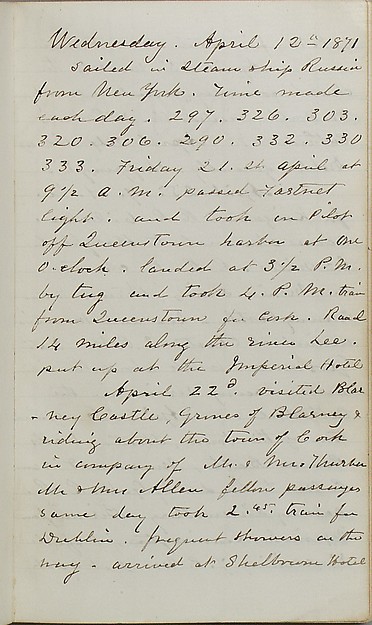 Wednesday. April 12th 1871
Sailed in Steam ship Russia
from New York. Time made
each day. 297. 326. 303.
320. 306. 290. 332. 330
333. Friday 21.st April at
9 1/2 A.M. passed Fastnet
light. and took on Pilot
off Queenstown harbor at one
O-clock. landed at 3 1/2 P.M.
by tug and took 4. P.M. train
from Queenstown for Cork. Road
14 miles along the river Lee.
put up at the Imperial Hotel
April 22d. visited Blar
-ney Castle, Groves of Blarney &
riding about the town of Cork
in company of Mr. & Mrs
Mr & Mrs Allen fellow passengers
same day took 2.45. train for
Dublin. frequent showers on the
way - arrived at Shelbourne Hotel